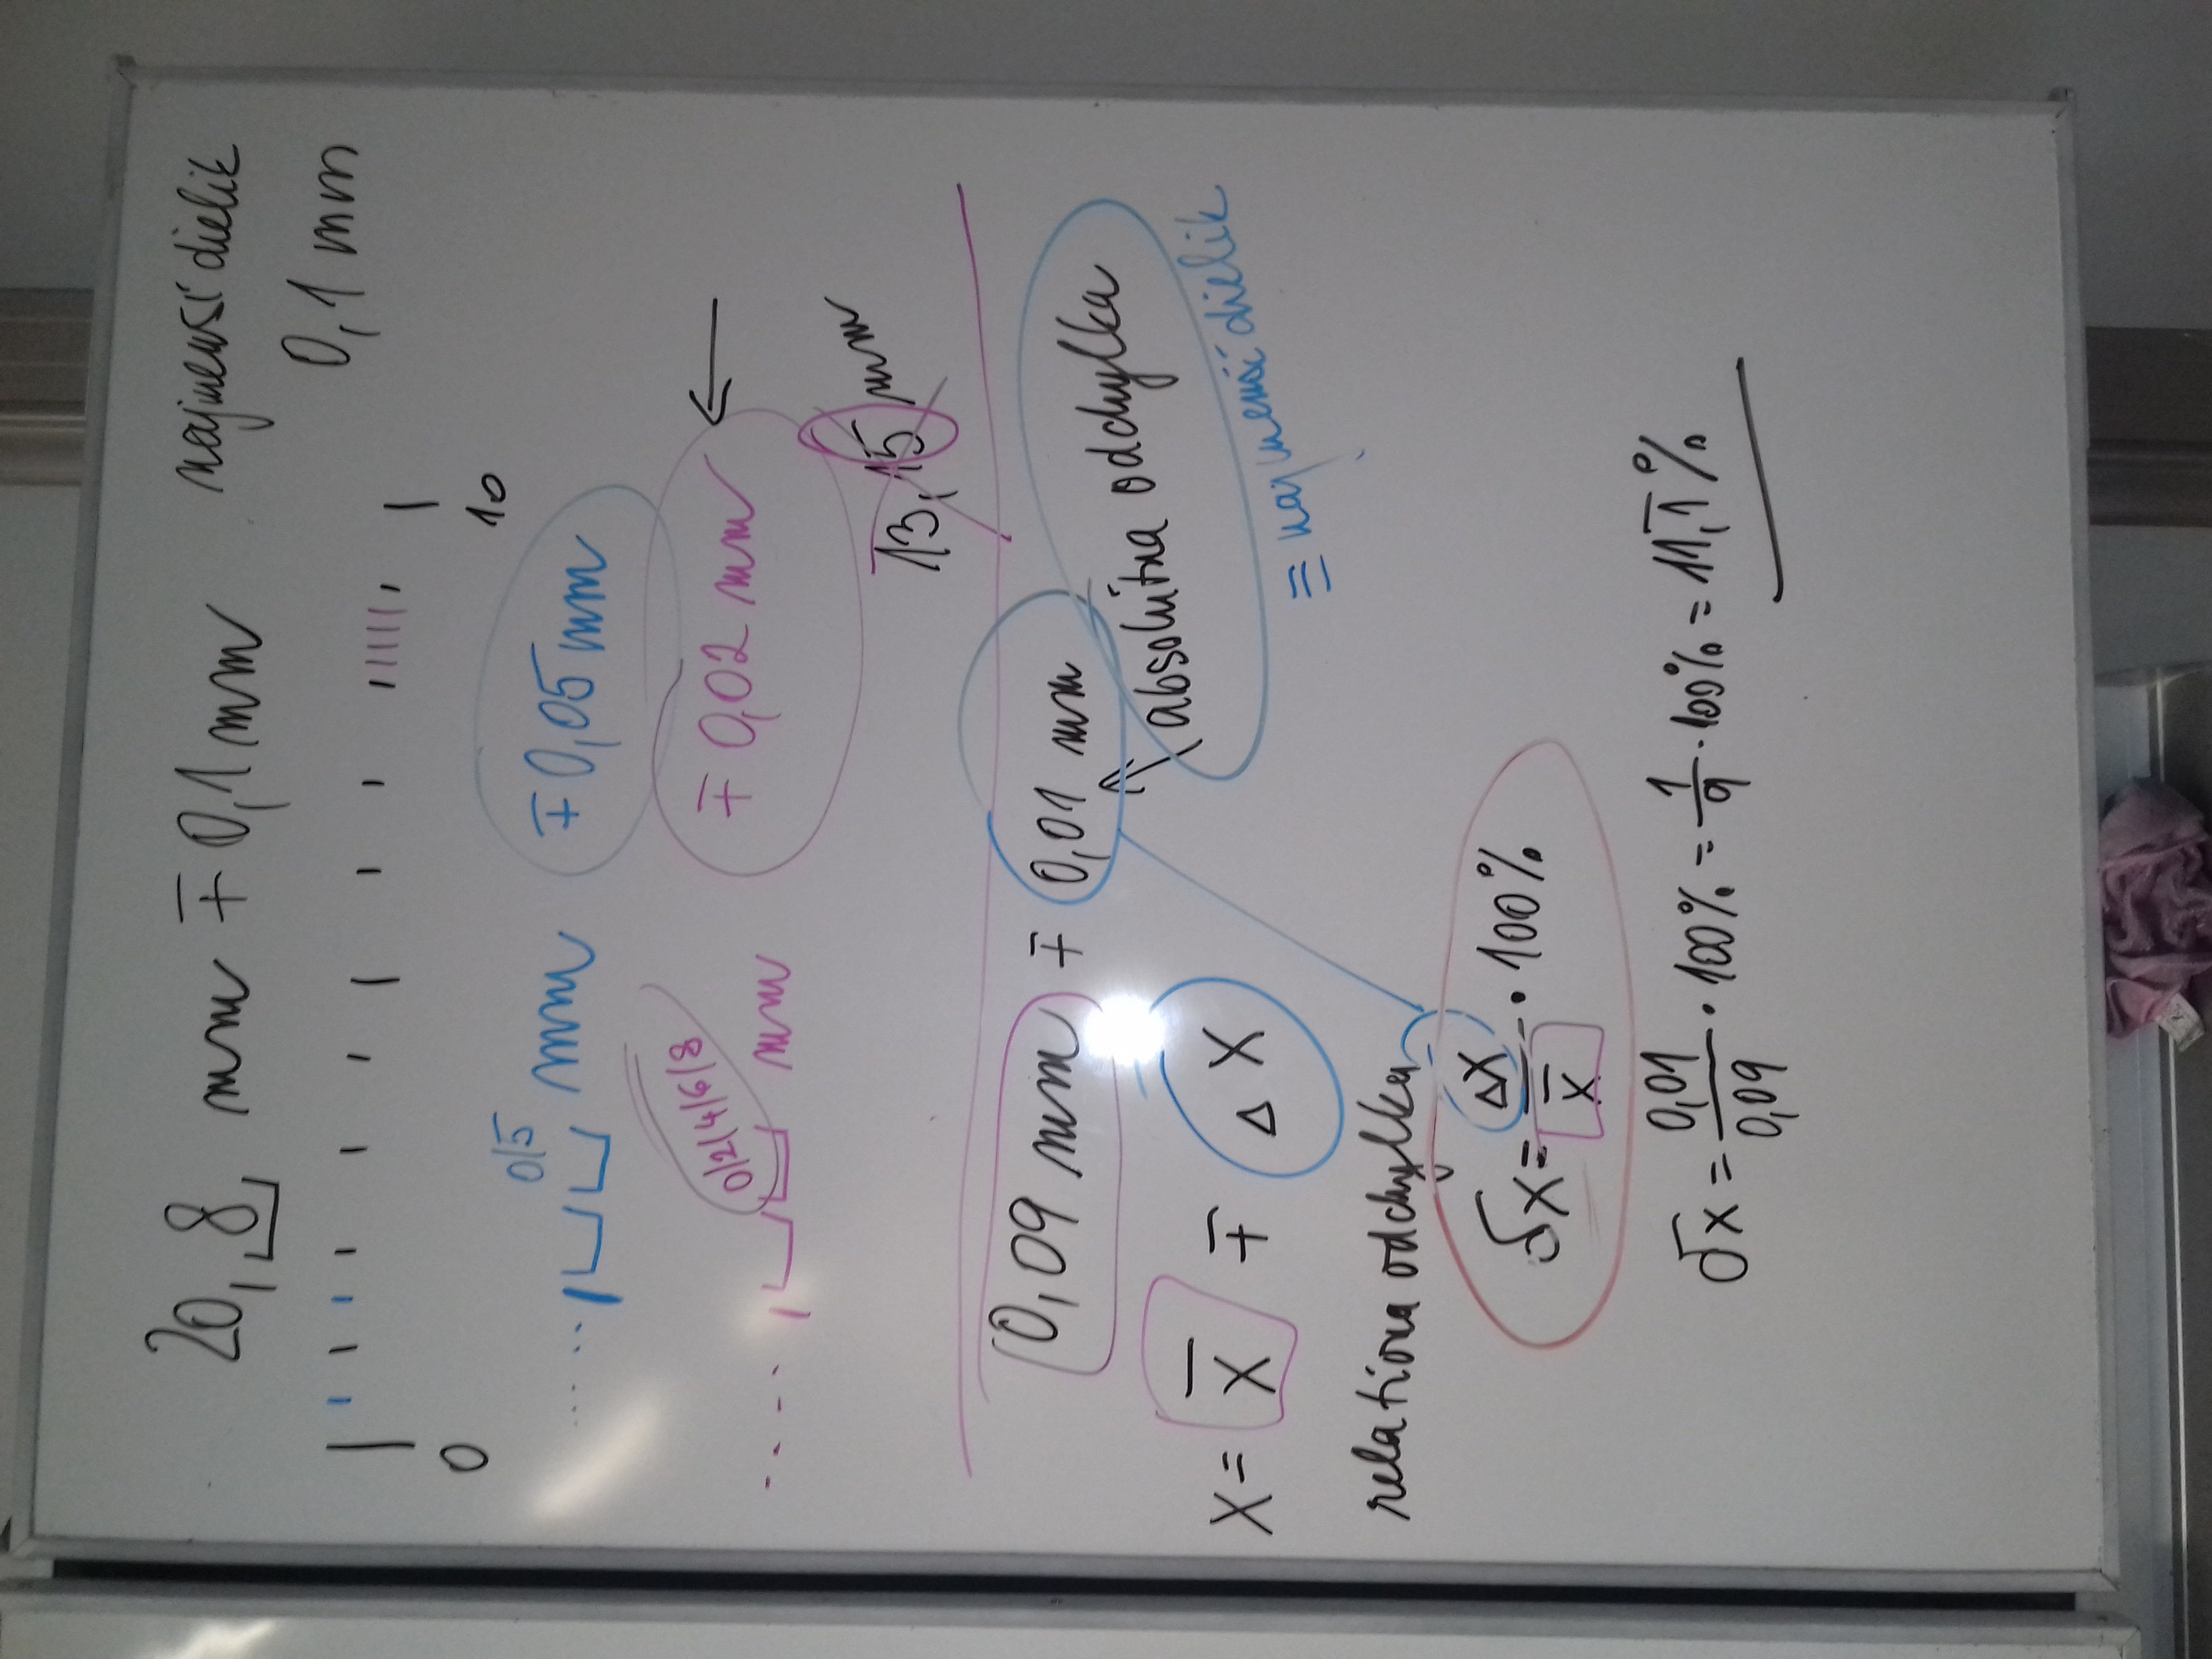 20,8 mm ∓ 0,1 mm najmenší dielik
0,1 mm
0 10
0/5
.... , mm ∓ 0,05 mm
0/2/4/6/8
.... , mm ∓ 0,02 mm
13,15 mm
0,09 mm ∓ 0,01 mm
absolútna odchylka
≡ najmenší dielik
X = X̅ ∓ ΔX
relatívna odchylka
δX = ΔX / X̅ · 100%
δX = 0,01 / 0,09 · 100% = 1/9 · 100% = 11,1̅%